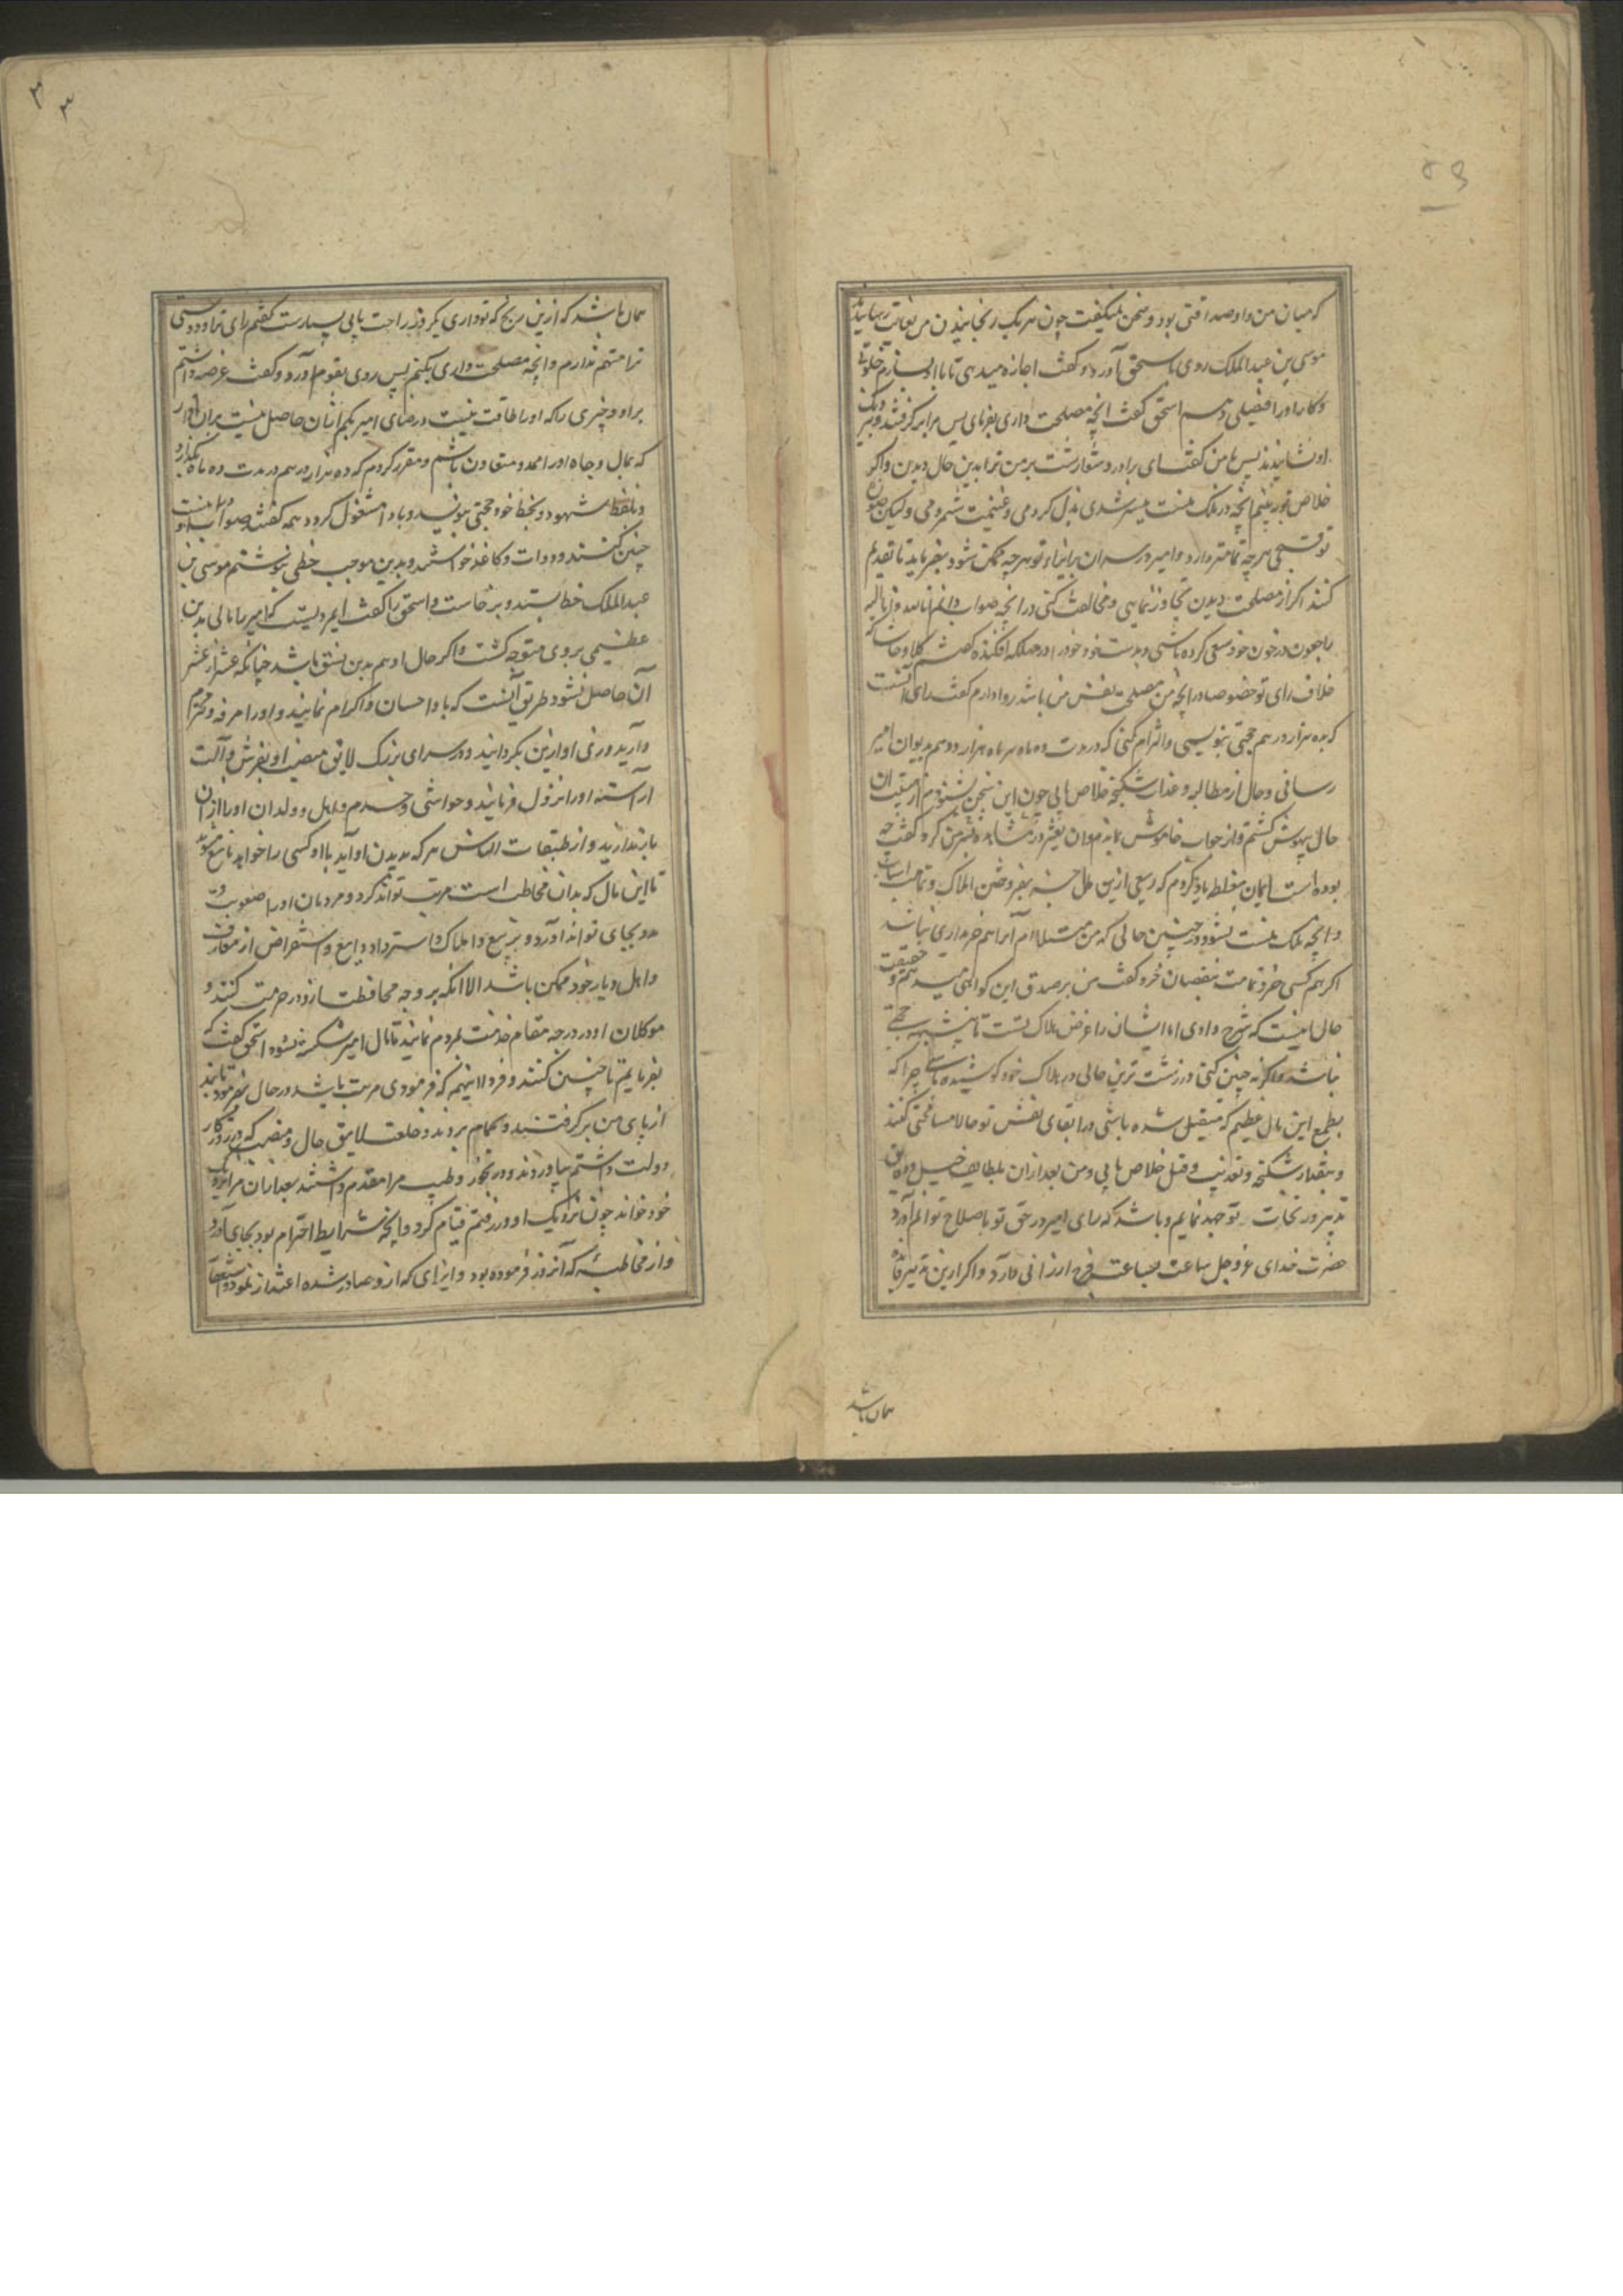 که میان من و او صداقتی بود و سخن میگفت چون هر یک رنجانیدن من بغایت رسانید
موسی بن عبدالملک روی باسحق آورد و گفت اجازه میدهی تا با او بسازم خلوتی
و کار او را فیصلی دهم اسحق گفت انچه مصلحت داری بفرمای پس مرا برگرفتند و نزدیک
او نشانیدند پس با من گفت ای برادر دشوارست بر من ترا بدین حال دیدن و اگر
خلاص تو بدانچه در ملک منست میسر شدی بذل کردمی و غنیمت شمردمی ولیکن
هر چه تمامتر دارد و امیر در ایذاء تو هر چه ممکن شود بفرماید تا تقدیم
کنند اگر از مصلحت دیدن تجاوز نمایی و مخالفت کنی در انچه صواب دانم انا لله و انا الیه
راجعون در خون خود سعی کرده باشی و بدست خود خود را در مهلکه افکنده گفتم کلا و حاشا که
خلاف رای تو خصوصا در انچه متضمن مصلحت نفس من باشد روا دارم گفت رای آنست
که بده هزار درهم حجتی بنویسی و التزام کنی که در مدت ده ماه هر ماه هزار درهم بدیوان امیر
رسانی و حال از مطالبه و عذاب شکنجه خلاص یابی چون این سخن بشنودم از
حال بیهوش گشتم و از جواب خاموش بماندم و آن تغیر در مشاهده من کرد و گفت چه
بوده است ایمان مغلظه یاد کردم که ربعی ازین مال جز بفروختن املاک و تمامت اسباب
و انچه ملک منست نشود و در چنین حالی که من مبتلا ام آنرا هم خریداری نباشد
اگر هم کسی خرد تمامت بنقصان خرد گفت من بر صدق این گواهی میدهم و حقیقت
حال اینست که شرح دادی اما ایشان را غرض هلاک تست تا
نباشد و اگر نه چنین کنی در زشت ترین حالی در هلاک خود کوشیده باشی چرا که
بطمع این مال عظیم که متقبل شده باشی در ابقای نفس تو حالا مسامحتی کنند
و بمقدار شکنجه و تعذیب و قتل خلاص یابی و من بعد از آن بلطایف حیل و دقایق
تدبیر در نجات تو جهد نمایم و باشد که رای امیر در حق تو باصلاح توانم آورد
حضرت خدای عز و جل ساعت بساعت فرح ارزانی دارد و اگر ازین تدبیر فایده
همان باشد
همان باشد که ازین رنج که تو داری یکروزه راحت یابی بسیارست گفتم رای ترا و دوستی
ترا متهم ندارم و انچه مصلحت داری بکنم پس روی بقوم آورد و گفت عرضه داشتم
بر او چیزی را که او را طاقت نیست و رضای امیر بکم از آن حاصل نیست بر آن قرار
که بمال و جاه او را ممد و معاون باشم و مقرر کردم که ده هزار درهم در مدت ده ماه بگذارد
و شهود و بخط خود حجتی بنویسد و باداء مشغول گردد همه گفتند صواب اینست
چنین کنند و دوات و کاغذ خواستند و بدین موجب خطی نوشتم موسی بن
عبدالملک خط بستد و برخاست و اسحق را گفت این مردیست که امیر را مالی بدین
عظیمی بر وی متوجه گشت و اگر حال او هم بدین نسق باشد چنانکه عشر از عشر
آن حاصل نشود طریق آنست که با او احسان و اکرام نمایید و او را مرفه و محترم
دارید و زی او ازین بگردانید و در سرای بزرگ لایق منصب او بفرش و آلت
آراسته او را نزول فرمایید و حواشی و خدم و اهل و ولدان او را از آن
باز ندارید و از طبقات الناس هر که بدیدن او آید یا او کسی را خواند مانع نشوید
تا این مال که بدان مخاطب است مرتب تواند کرد و مردمان او را
بجای تواند آورد و بر بیع املاک و استرداد ودایع و استقراض از معارف
و اهل دیار خود ممکن باشد الا آنکه بر وجه محافظت از دور حرمت کنند و
موکلان او در درجه مقام خدمت لزوم نمایند تا مال امیر شکسته نشود اسحق گفت که
بفرمایم تا چنین کنند و فردا اینهم که فرمودی مرتب باشد در حال بفرمود تا بند
از پای من برگرفتند و بحمام بردند و خلعت لایق حال و منصب که در روزگار
دولت داشتم بیاوردند و در بخور و طیب مرا مقدم داشتند بعد از آن مرا نزدیک
خود خواند چون نزدیک او در رفتم قیام کرد و انچه شرایط احترام بود بجای آورد
و از مخاطبهٔ که آنروز فرموده بود و ایذای که از او صادر شده اعتذار نمود